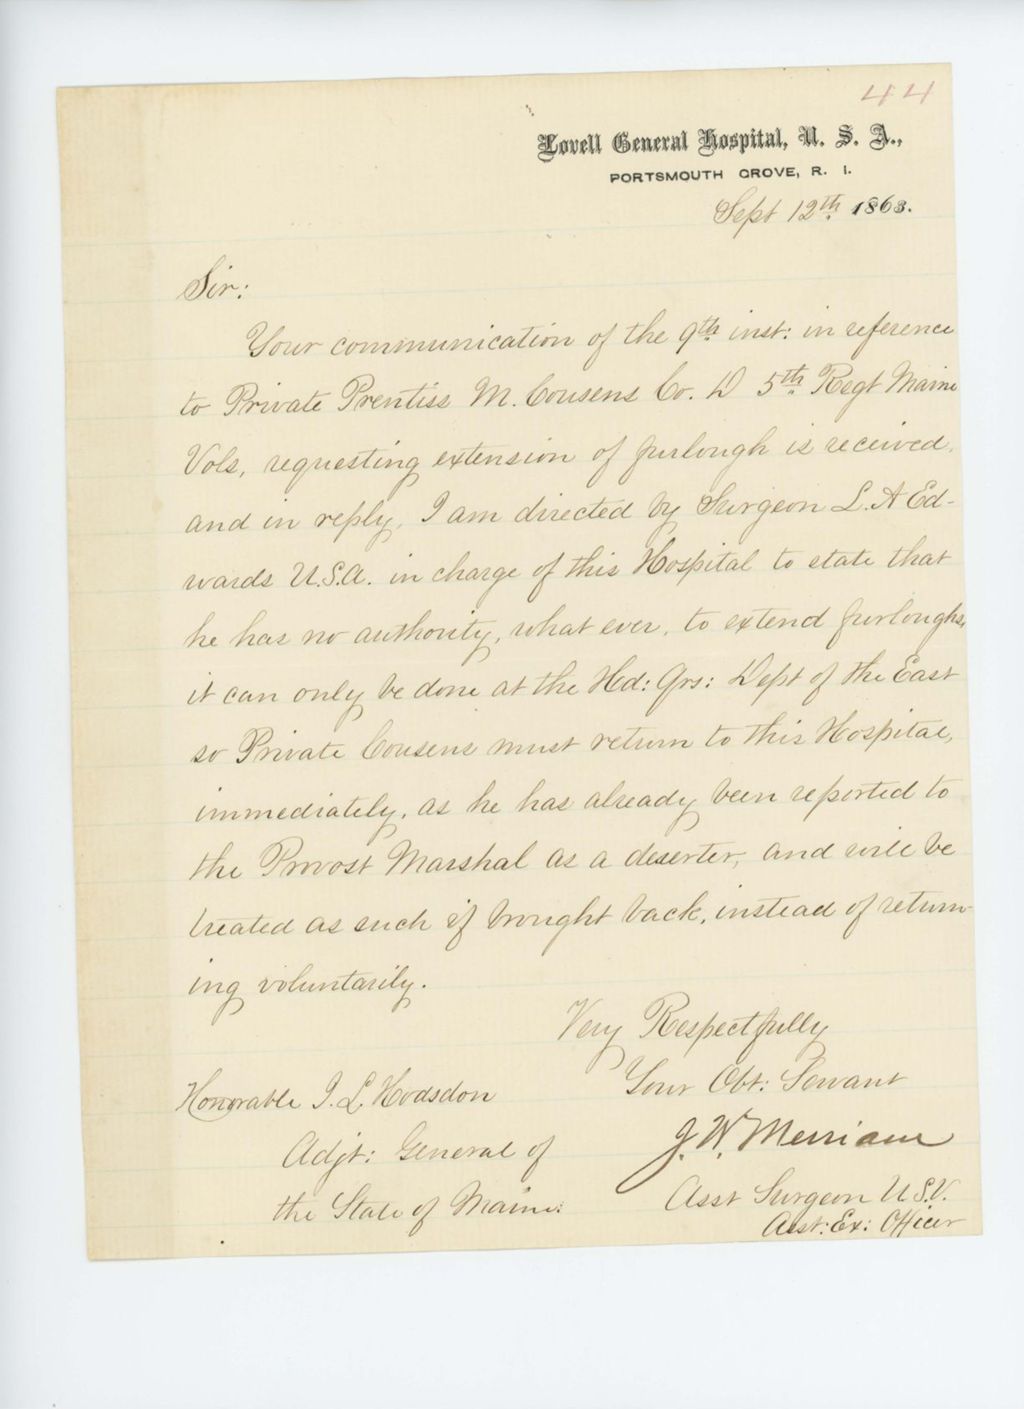 44
Lovell General Hospital, U. S. A.,
PORTSMOUTH GROVE, R. I.
Sept 12th 1863.
Sir:
Your communication of the 9th inst: in reference
to Private Prentiss M. Cousens Co. D 5th Regt Maine
Vols, requesting extension of furlough is received,
and in reply, I am directed by Surgeon L. A Ed-
wards U.S.A. in charge of this Hospital to state that
he has no authority, what ever, to extend furloughs,
it can only be done at the Hd: Qrs: Dept of the East
so Private Cousens must return to this Hospital,
immediately, as he has already been reported to
the Provost Marshal as a deserter, and will be
treated as such if brought back, instead of return-
ing voluntarily.
Very Respectfully
Your Obt: Servant
J. W. Merriam
Asst Surgeon U.S.V.
Asst: Ex: Officer
Honorable J. L. Hodsdon
Adjt: General of
the State of Maine: